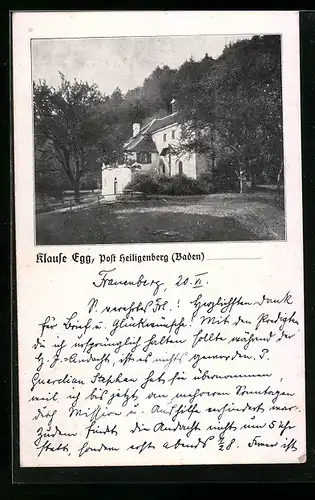 Klause Egg, Post Heiligenberg (Baden)
Frauenberg, 20. II.
S. verehrtes Frl.! Herzlichsten Dank
für Brief u. Glückwünsche! Mit den Predigten
die ich ursprünglich halten sollte während der
H. J.-Andacht, ist es nichts geworden. P.
Guardian Stephan hat sie übernommen,
weil ich bis jetzt an mehreren Sonntagen
durch Mission u. Aushilfe verhindert war.
Zudem findet die Andacht nicht um 5 Uhr
statt, sondern erst abends ½8. Ferner ist